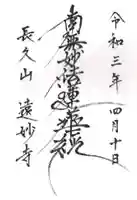 令和三年 四月十日
南無妙法蓮華経
長久山 遠妙寺